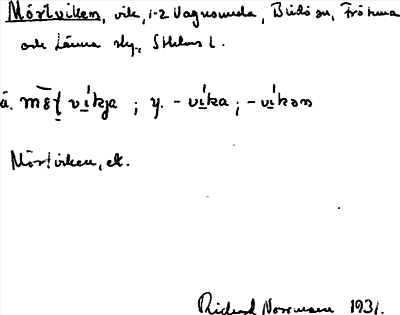 Mörtviken, vik, i-2 Vagnsunda, Bidö sn, Frötuna
och Länna skg., Sthlms l.
ä. mɛ̄ʈ vi̱kja ; y. - vi̱ka ; - vi̱kən
Mörtviken, ek.
Richard Norrman 1931.